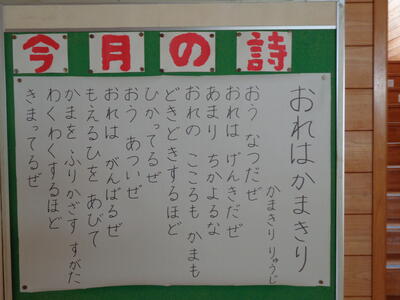 今月の詩
おれはかまきり
かまきりりゅうじ
おう なつだぜ
おれは げんきだぜ
あまり ちかよるな
おれの こころも かまも
どきどきするほど
ひかってるぜ
おう あついぜ
おれは がんばるぜ
もえるひを あびて
かまを ふりかざす すがた
わくわくするほど
きまってるぜ